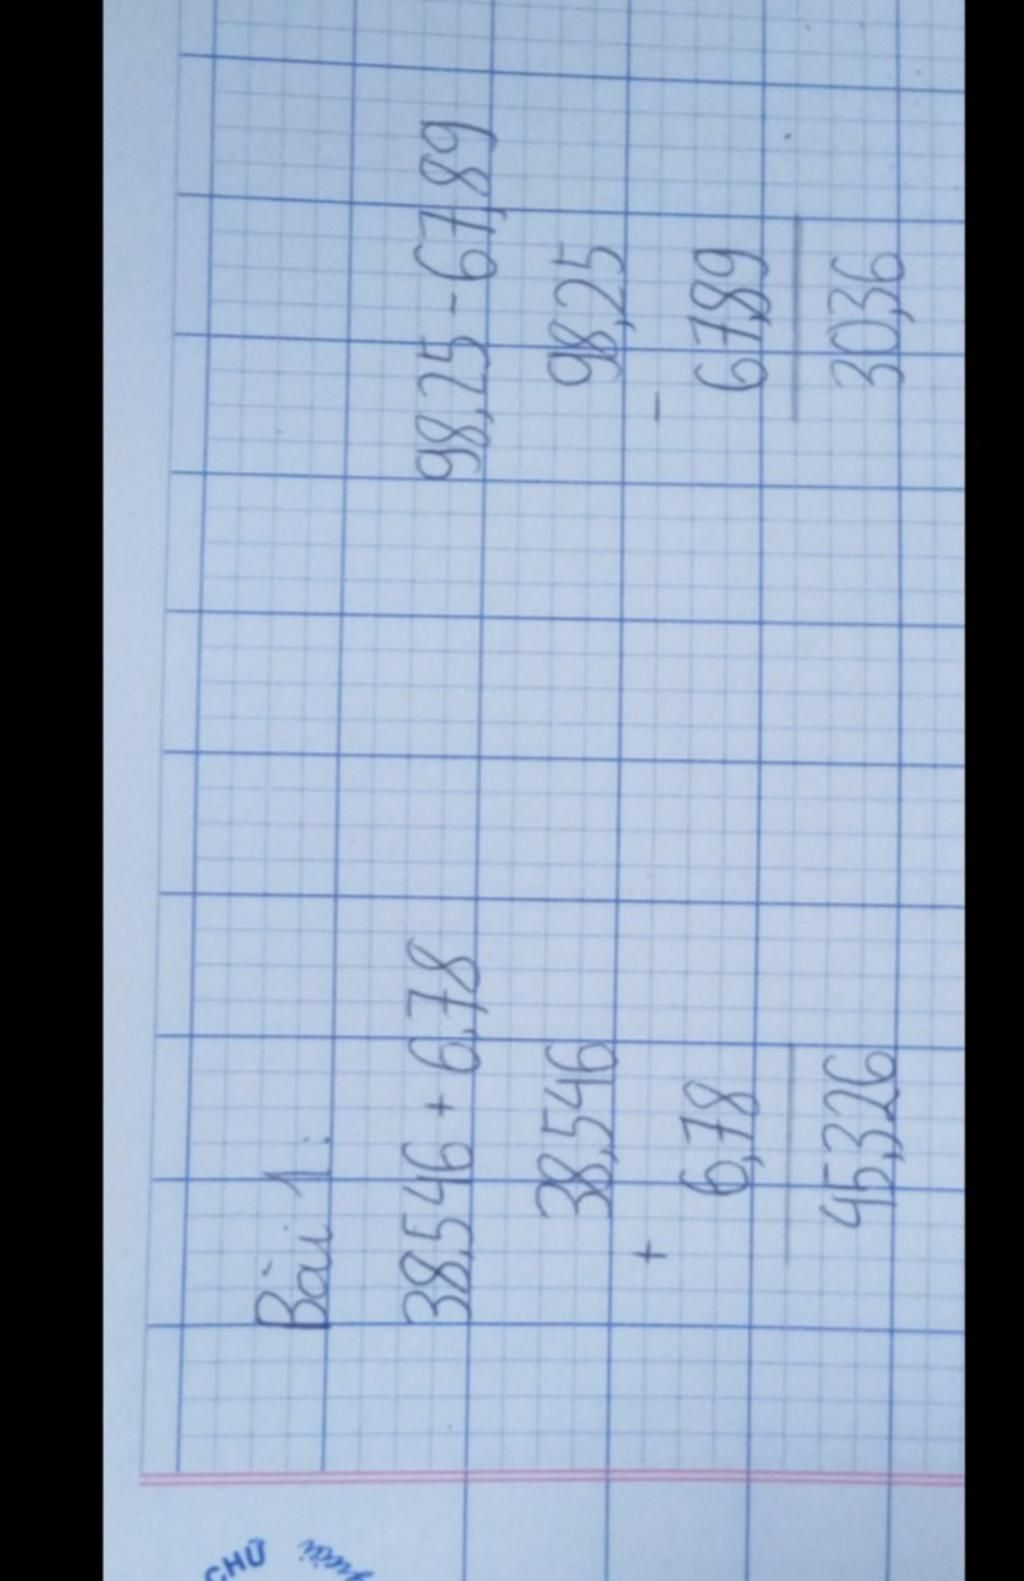 Bài 1:
38,546 + 6,78
98,25 - 67,89
38,546
+
6,78
45,326
98,25
-
67,89
30,36
CHỮ